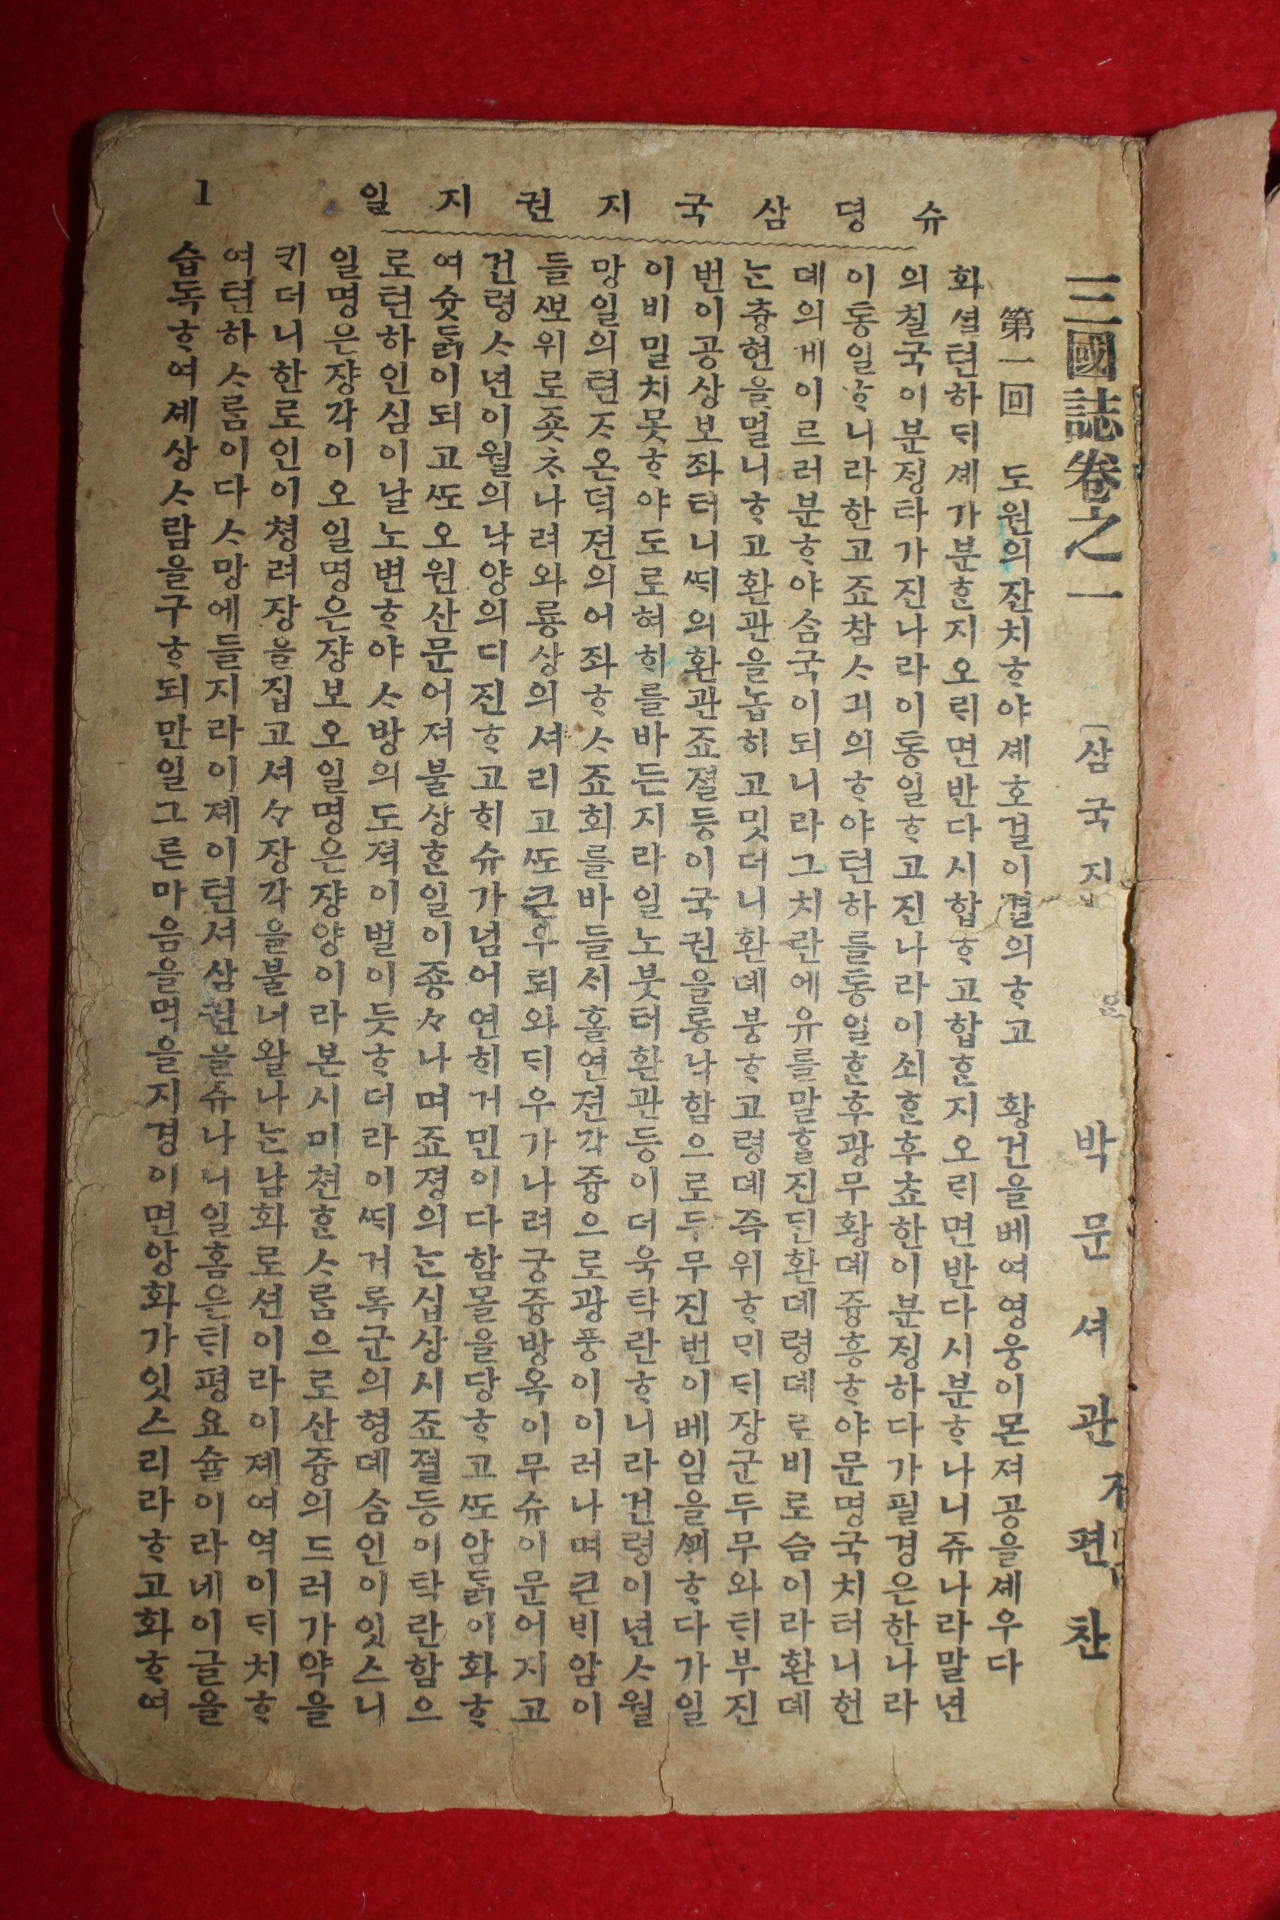 슈뎡삼국지권지일
1
三國誌卷之一 [삼국지 박문셔관 편찬
第一回 도원의잔치ᄒᆞ야셰호걸이결의ᄒᆞ고 황건을베여영웅이몬져공을셰우다
화셜텬하ᄃᆡ셰가분ᄒᆞᆫ지오ᄅᆡ면반다시합ᄒᆞ고합ᄒᆞᆫ지오ᄅᆡ면반다시분ᄒᆞ나니쥬나라말년
의칠국이분정타가진나라이통일ᄒᆞ고진나라이쇠ᄒᆞᆫ후쵸한이분징하다가필경은한나라
이통일ᄒᆞ니라한고죠참ᄉᆞ긔의ᄒᆞ야텬하를통일ᄒᆞᆫ후광무황뎨즁흥ᄒᆞ야문명국치터니헌
뎨의게이르러분ᄒᆞ야ᄉᆞᆷ국이되니라그치란에유를말ᄒᆞᆯ진ᄃᆡᆫ환뎨령뎨로비로슴이라환뎨
ᄂᆞᆫ츙현을멀니ᄒᆞ고환관을놉히고밋더니환뎨붕ᄒᆞ고령뎨즉위ᄒᆞᄆᆡᄃᆡ장군두무와ᄐᆡ부진
번이공상보좌터니ᄯᆡ의환관죠졀등이국권을롱낙함으로두무진번이베임을ᄭᅬᄒᆞ다가일
이비밀치못ᄒᆞ야도로혀ᄒᆡ를바든지라일노붓터환관등이더욱탁란ᄒᆞ니라건령이년ᄉᆞ월
망일의텬ᄌᆞ온덕젼의어좌ᄒᆞᄉᆞ죠회를바들ᄉᆡ홀연젼각즁으로광풍이이러나며큰ᄇᆡ암이
들ᄲᅩ위로죳ᄎᆞ나려와룡상의셔리고ᄯᅩ큰우뢰와ᄃᆡ우가나려궁즁방옥이무슈이문어지고
건령ᄉᆞ년이월의낙양의디진ᄒᆞ고ᄒᆡ슈가넘어연ᄒᆡ거민이다함몰을당ᄒᆞ고ᄯᅩ암ᄃᆞᆰ이화ᄒᆞ
여슛ᄃᆞᆰ이되고ᄯᅩ오원산문어져불상ᄒᆞᆫ일이죵々나며죠졍의ᄂᆞᆫ십상시죠졀등이탁란함으
로텬하인심이날노변ᄒᆞ야ᄉᆞ방의도젹이벌이듯ᄒᆞ더라이ᄯᆡ거록군의형뎨ᄉᆞᆷ인이잇스니
일명은쟝각이오일명은쟝보오일명은쟝양이라본시미쳔ᄒᆞᆫᄉᆞᄅᆞᆷ으로산즁의드러가약을
ᄏᆡ더니한로인이쳥려장을집고셔々장각을불너왈나ᄂᆞᆫ남화로션이라이졔여역이ᄃᆡ치ᄒᆞ
여텬하ᄉᆞᄅᆞᆷ이다ᄉᆞ망에들지라이졔이텬셔삼권을쥬나니일홈은ᄐᆡ평요슐이라네이글을
습독ᄒᆞ여셰상ᄉᆞ람을구ᄒᆞ되만일그른마음을먹을지경이면앙화가잇스리라ᄒᆞ고화ᄒᆞ여